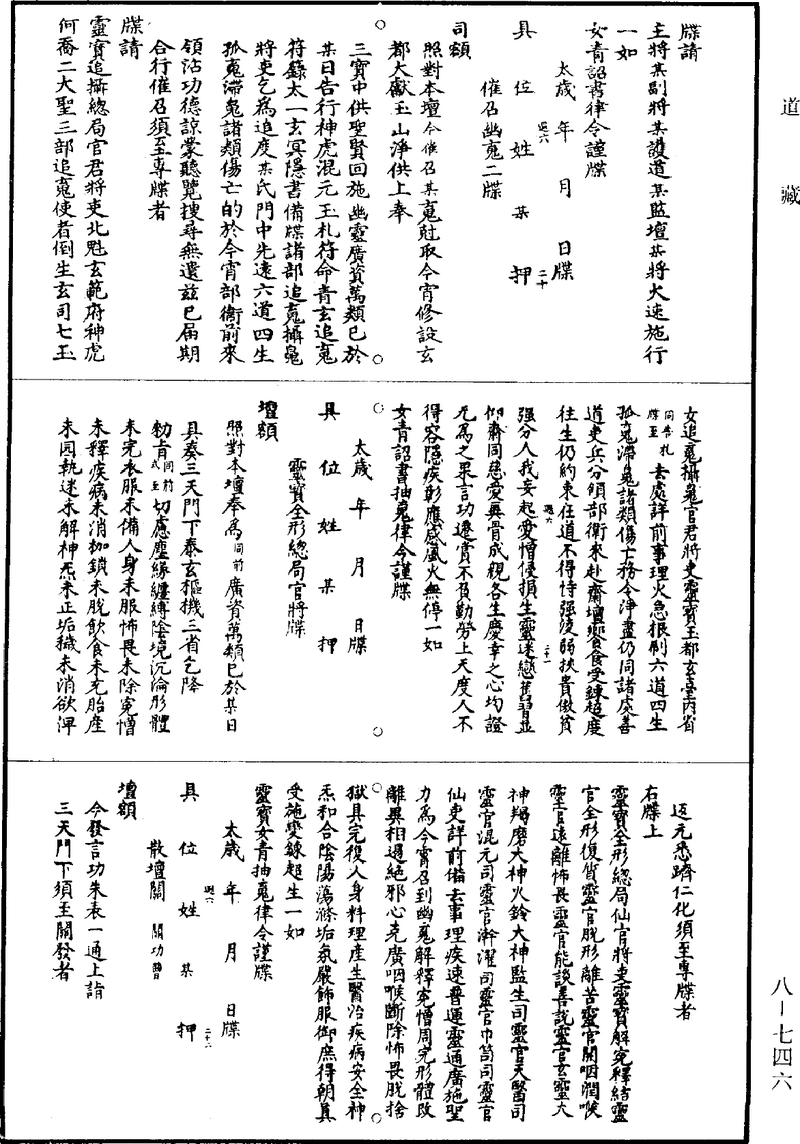 道藏
牒請
主將某副將某護道某監壇某將火速施行
一如
女青詔書律令謹牒
太歲年月日牒
具位姓某押
催召幽䰟二牒
司額
照對本壇今催召某䰟尅取今宵修設玄
都大獻玉山淨供上奉
三寶中供聖賢回施幽靈廣資萬類已於
某日告行神虎混元玉札符命青玄追䰟
符籙太一玄冥隱書備牒諸部追䰟攝䰟
將吏乞為追度某氏門中先遠六道四生
孤䰟滯魄諸類傷亡的於今宵部衞前來
領沾功德諒蒙聽覽搜尋無遺兹已届期
合行催召須至專牒者
牒請
靈寶追攝總局官君將吏北魁玄範府神虎
何喬二大聖三部追䰟使者倒生玄司七玉
女追䰟攝䰟官君將吏靈寶玉都玄臺丙省
同告札牒至去處詳前事理火急根刷六道四生
孤䰟滯魄諸類傷亡務令淨盡仍同諸處善
道吏兵分領部衞來赴齋壇饗食受鍊超度
往生仍約束在道不得恃強凌弱挾貴傲貧
强分人我妄起愛憎侵損生靈迷戀舊習並
仰齋同慈愛異骨成親各生慶幸之心均證
无為之果言功遷賞不負勤勞上天度人不
得容隱疾彰應感風火無停一如
女青詔書抽䰟律令謹牒
太歲年月日牒
具位姓某押
靈寶全形總局官將牒
壇額
照對本壇奉為同前廣資萬類已於某日
具奏三天門下泰玄樞機三省乞降
勑旨同前式至切慮塵緣纏縛陰境沉淪形體
未完衣服未備人身未服怖畏未除寃憎
未釋疾病未消枷鎖未脫飲食未充胎產
未圓執迷未解神炁未正垢穢未消欲俾
返元悉躋仁化須至專牒者
右牒上
靈寶全形總局仙官將吏靈寶解寃釋結靈
官全形復質靈官脫形離苦靈官開咽潤喉
靈官遠離怖畏靈官能談善說靈官玄靈大
神羯磨大神火鈴大神監生司靈官天醫司
靈官混元司靈官澣濯司靈官巾笥司靈官
仙吏詳前備去事理疾速普運靈通廣施聖
力為今宵召到幽䰟解釋寃憎周完形體改
離異相遏絕邪心充廣咽喉斷除怖畏脫捨
獄具完復人身料理產生醫治疾病安全神
炁和合陰陽蕩滌垢氛嚴飾服御庶得朝真
受施變鍊超生一如
靈寶女青抽䰟律令謹牒
太歲年月日牒
具位姓某押
散壇關 關功曹
壇額
今發言功朱表一通上詣
三天門下須至關發者
八－七四六